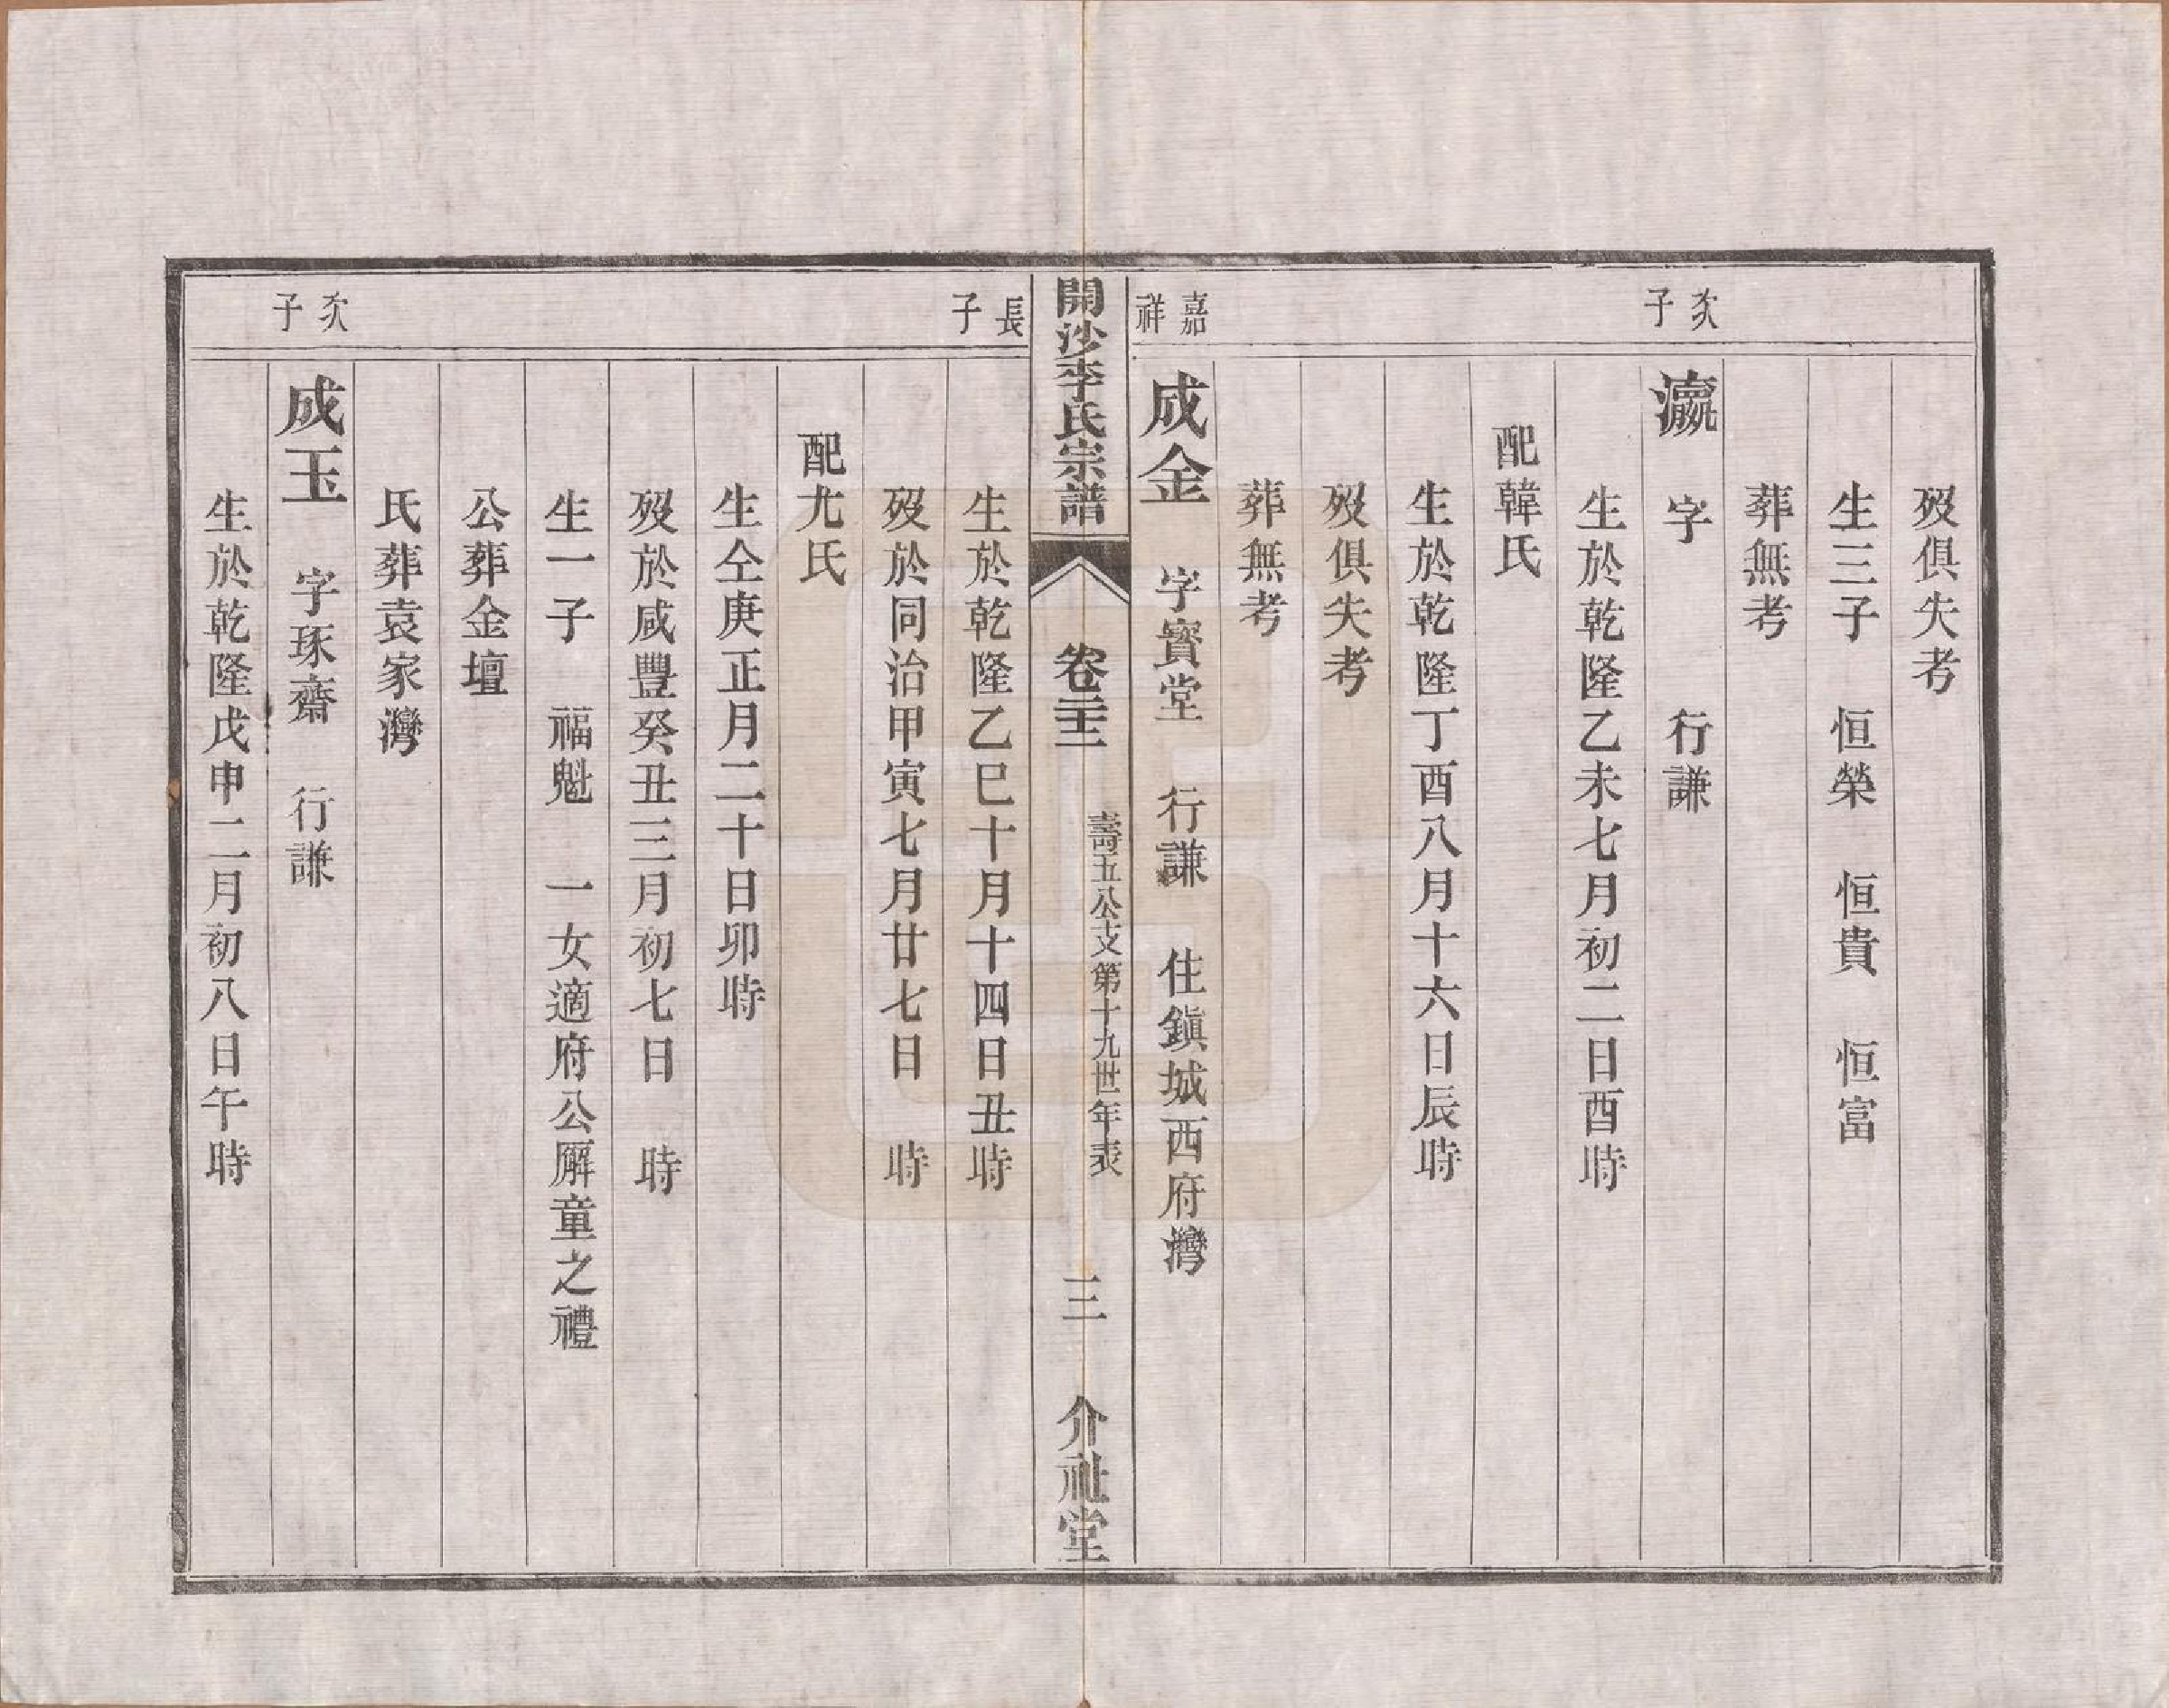 歿俱失考
生三子　恒榮　恒貴　恒富
葬無考
次子
瀛　字　　　行謙
生於乾隆乙未七月初二日酉時
配韓氏
生於乾隆丁酉八月十六日辰時
歿俱失考
葬無考
嘉祥
成金　字寳堂　行謙　住鎭城西府灣
開沙李氏宗譜　卷三十二　壽五公支第十九世年表　三　介祉堂
長子
生於乾隆乙巳十月十四日丑時
歿於同治甲寅七月廿七日　時
配尤氏
生仝庚正月二十日卯時
歿於咸豐癸丑三月初七日　時
生一子　福魁　一女適府公廨童之禮
公葬金壇
氏葬袁家灣
次子
成玉　字琢齋　行謙
生於乾隆戊申二月初八日午時